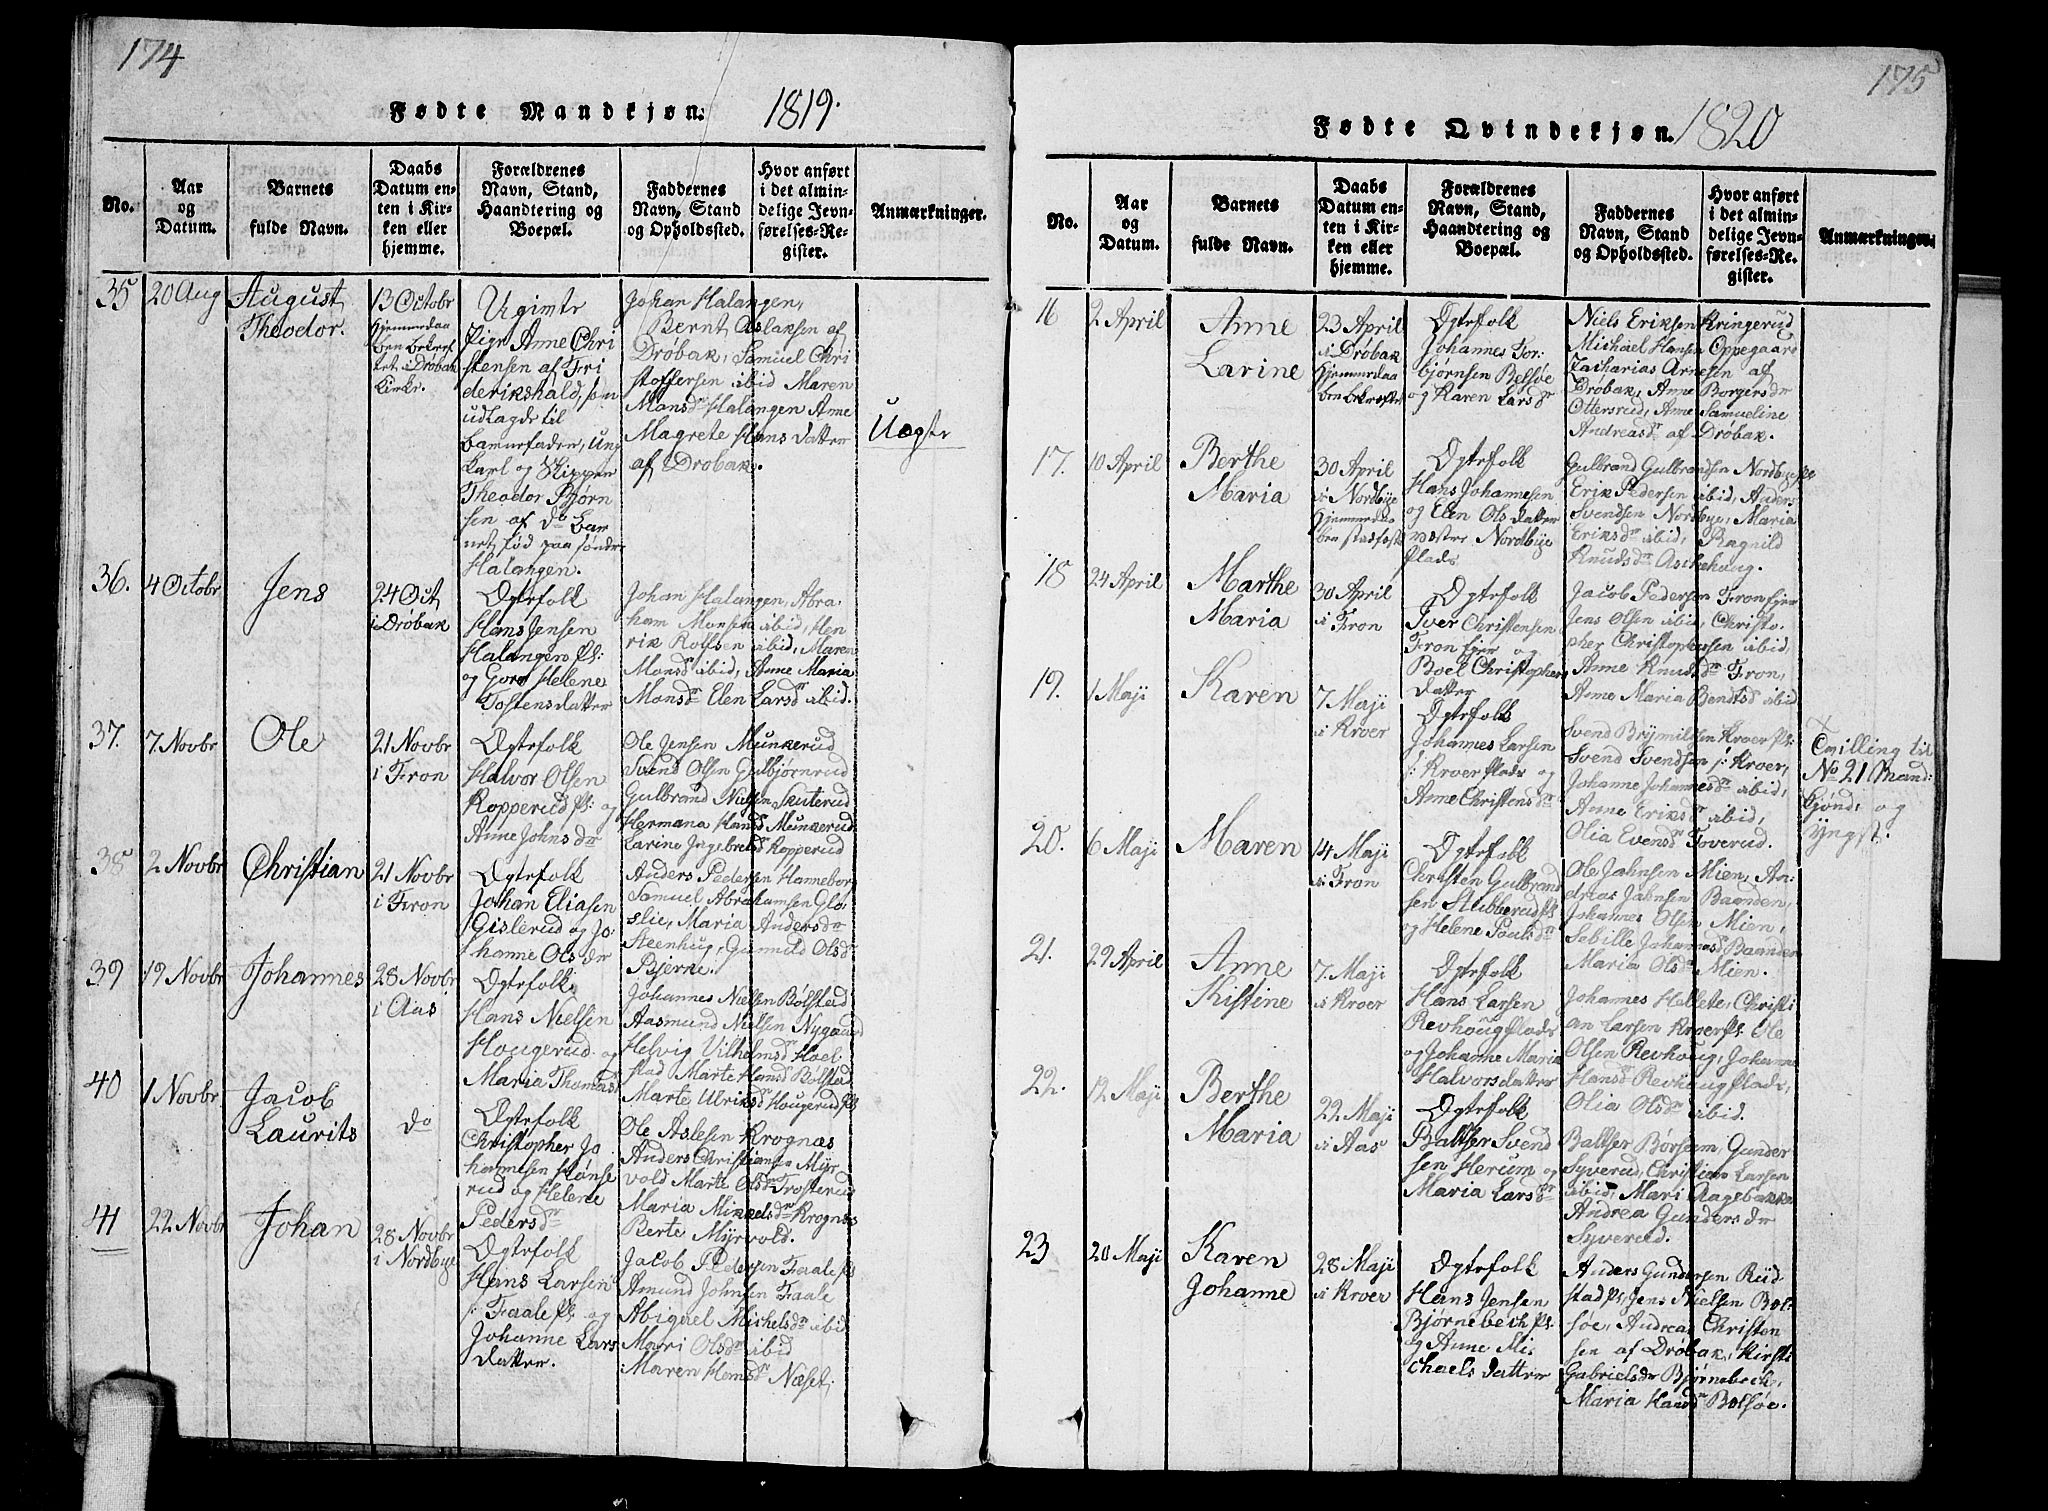 174
Fødte Mandkjøn. 1819.
No.
Aar og Datum.
Barnets fulde Navn.
Daabs Datum enten i Kirken eller hjemme.
Forældrenes Navn, Stand, Haandtering og Boepæl.
Faddernes Navn, Stand og Opholdssted.
Hvor anført i det almindelige Jevnførelses-Register.
Anmærkninger.
35
20 Aug
August
Theodor.
13 Octobr
Hjemmedaa
ben bekref
tet i Drøbak
Kirke.
Ugimte
Pige Anne Chri
stensen af Fri
derikshald,
udlagde til
barnefader, Ung
karl og Skipper
Theodor Bjørn
sen af do Bar
net fød paa søndre
Halangen.
Johan Halangen,
Bernt Aslaksen af
Drøbak, Samuel Chri
stoffersen ibid Maren
Monsdr Halangen Anne
Magrete Hans datter
af Drøbak.
Uægte
36.
4 Octobr
Jens
24 Oct
i Drøbak
Ægtefolk
Hans Jensen
Halangen Pl:
og Goro Helene
Tostensdatter
Johan Halangen, Abra-
ham Monsen ibid, Hen
rik Rolfsen ibid, Maren
Monsdr ibid, Anne Maria
Monsdr Elen Larsdr ibid.
37.
7 Novbr
Ole
21 Novbr
i Fron
Ægtefolk
Halvor Olsen
Kopperud Pl: og
Anne Johnsdr
Ole Jensen Munkerud
Svend Olsen Gulbjørnrud
Gulbrand Nielsen Skuterud
Hermana Hansdr Munkerud
Larine Ingebretsdr Kopperud
38
2 Novbr
Christian
21 Novbr
i Fron
Ægtefolk
Johan Eliasen
Gislerud og Jo:
hanne Ols dr
Anders Pedersen Hanneborg
Samuel Abrahamsen Glo
slie, Maria Andersdr
Steenhug, Gunnild Olsdr
Bjerke.
39
19 Novbr
Johannes
28 Novbr
i Aas
Ægtefolk
Hans Nielsen
Hougerud og
Maria Thomasd
Johannes Nielsen Bølstad
Aasmund Nielsen Nygaard
Helvig Vilhelmsdr Hoel
stad Marte Hansdr Bølstad
Marte Ulriksdr Hougerud Pl
40
1 Novbr
Jacob
Laurits
do
Ægtefolk
Christopher Jo
hannesen Hønse
rud og Helene
Pedersdr
Ole Aslesen Krognæs
Anders Christiansen Myr
vold Marte Olsdr Trosterud
Maria Mikkelsdr Krognæs
Berte Myrvold.
41
22 Novbr
Johan
28 Novbr
i Nordbye
Ægtefolk
Hans Larsen
s: Faale Pl: og
Johanne Lars
datter.
Jacob Pedersen Faale Pl
Amund Johnsen Faale
Abigael Michelsdr ibid
Mari Olsdr ibid
Maren Hansdr Næset.
175
Fødte Qvindekjøn. 1820
No.
Aar og Datum.
Barnets fulde Navn.
Daabs Datum enten i Kirken eller hjemme.
Forældrenes Navn, Stand, Haandtering og Boepæl.
Faddernes Navn, Stand og Opholdssted.
Hvor anført i det almindelige Jevnførelses-Register.
Anmærkninger.
16
2 April
Anne
Larine
23 April
i Drøbak
Hjemmedaa
ben bekræftet
Ægtefolk
Johannes Tor:
bjørnsen Belsøe
og Karen Larsdr
Niels Eriksen Kringerud
Michael Hansen Oppegaard
Zacharias Arnesen af
Drøbak, Anne Borgersdr
Ottersrud, Anne Samueline
Andreasdr af Drøbak.
17.
10 April
Berthe
Maria
30 April
i Nordbye
Hjemmedaa
ben stadfæst
Ægtefolk
Hans Johannesen
og Elen Ols datter
vestre Nordbye
Plads
Gulbrand Gulbrandsen Nordbye Pl
Erik Pedersen ibid, Anders
Svendsen Nordbye, Maria
Eriksdr ibid, Ragnild
Knudsdr Askehoug.
18
24 April
Marthe
Maria
30 April
i Fron
Ægtefolk
Iver Christensen
Fron Ejer og
Boel Christophers
datter
Jacob Pedersen Fron Ejer
Jens Olsen ibid, Christo
pher Christophersen ibid,
Anne Knudsdr Fron,
Anne Maria Bendtsdr ibid
19.
1 Maji
Karen
7 Maji
i Kroer
Ægtefolk
Johannes Larsen
s: Kroer Plads og
Anne Christensdr
Svend Brynnildsen Kroer Pl:
Svend Svendsen s: Kroer,
Johanne Johannesdr ibid,
Anne Eriksdr ibid,
Olia Evensdr Toverud.
Tvilling til
No 21 Mand:
kjøn: og
yngst.
20.
6 Maji
Maren
14 Maji
i Fron
Ægtefolk
Christen Gulbrand
sen Stubberud Pl
og Helene Poulsdr
Ole Jahnsen Mien, An:
dreas Jahnsen Baanden,
Johannes Olsen Mien,
Sabille Johannesdr Baanden
Maria Olsdr Mien.
21.
29 April
Anne
Kistine
7 Maji
i Kroer
Ægtefolk
Hans Larsen
Revhoug Plads
og Johanne Maria
Halvorsdatter
Johannes Hellete, Christi
an Larsen Kroer Pl: Ole
Olsen Revhoug, Johanne
Hansdr Revhoug Plads,
Olia Olsdr ibid.
22.
12 Maji
Berthe
Maria
22 Maji
i Aas
Ægtefolk
Baltser Svend
sen Herum og
Maria Larsdr
Baltser Børsem, Gunder
Syverud, Christian Larsen
ibid, Mari Aagebakken
Andrea Gunders dr
Syverud.
23
20 Maji
Karen
Johanne
28 Maji
i Kroer
Ægtefolk
Hans Jensen
Bjørnebeck Pl:
og Anne Mi
chaels datter
Anders Gundersen Rud
stad Pl, Jens Nielsen Bol-
søe, Andreas Christen
sen af Drøbak, Kirsti
Gabrielsdr Bjørnebeck,
Maria Hansdr Bolsøe.